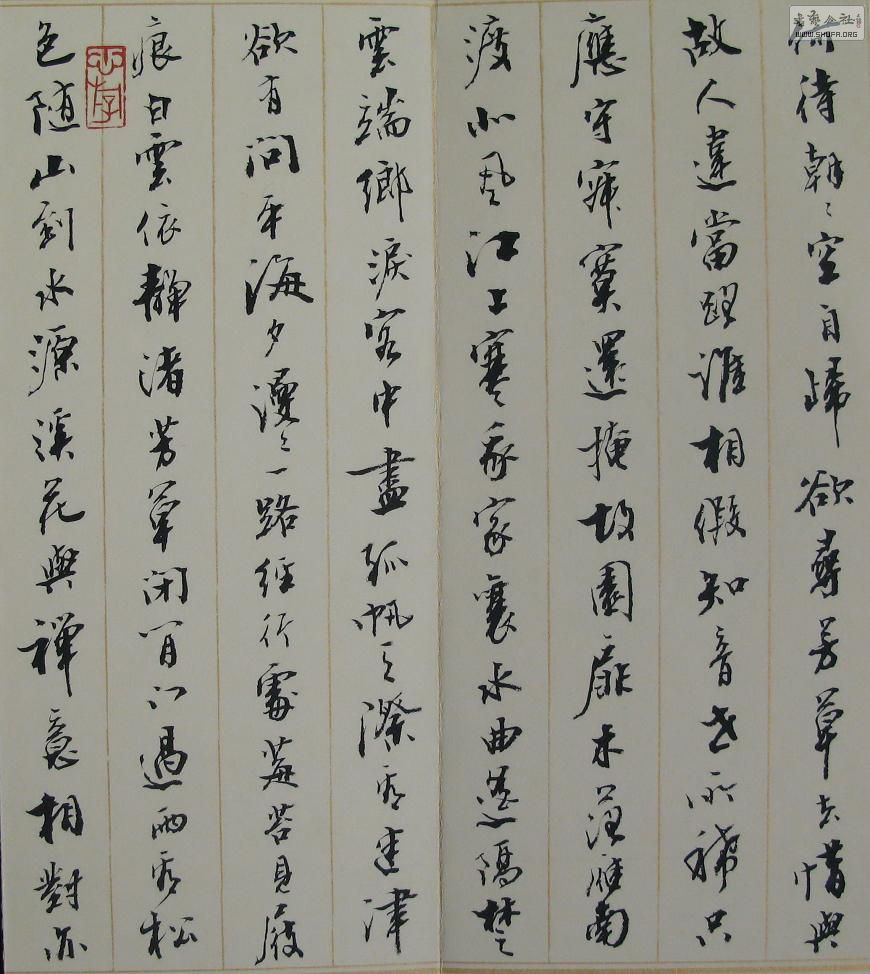 书艺公社
WWW.SHUFA.ORG
何待朝〻空自歸欲尋芳草去惜與
故人違當路誰相假知音世所稀只
應守寂寞還掩故園扉木落雁南
渡北風江上寒我家襄水曲遥隔楚
雲端鄉淚客中盡孤帆天際看迷津
欲有問平海夕漫〻一路經行處莓苔見履
痕白雲依靜渚芳草閉閒門過雨看松
色随山到水源溪花與禪意相對亦